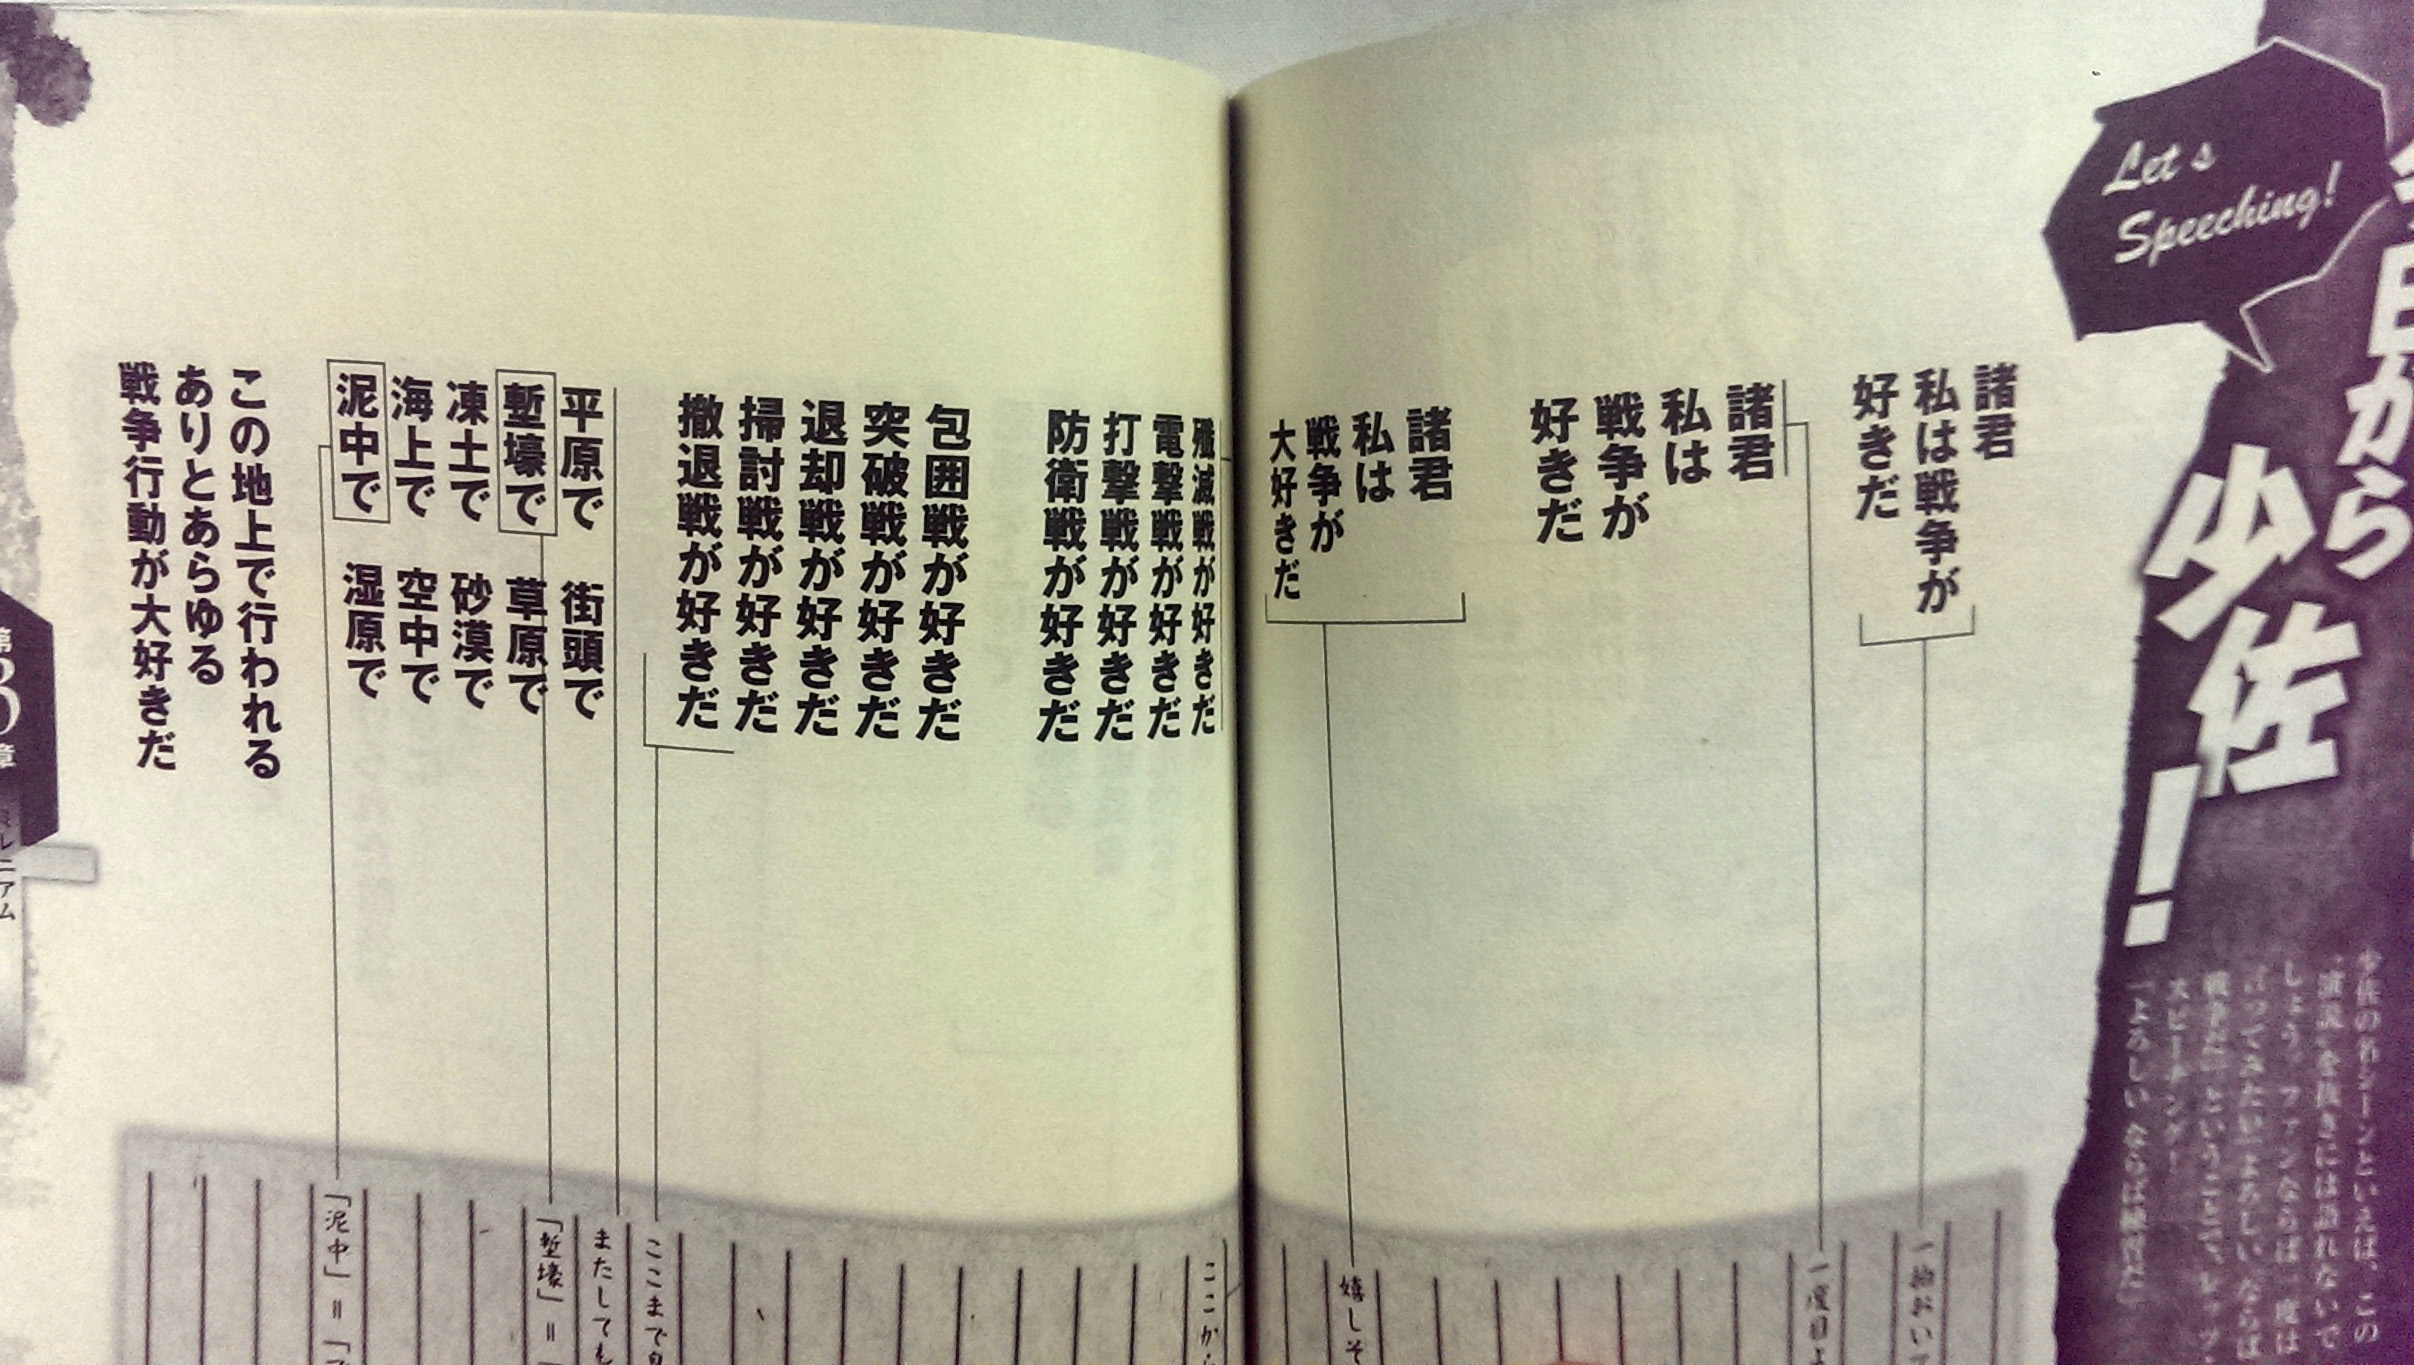 Let's
Speeching!
今日から
少佐!
少佐の名シーンといえば、この
“演説”を抜きには語れないで
しょう。ファンならば一度は
言ってみたい「よろしい ならば
戦争だ」ということで、レッツ・
スピーチング!
「よろしい ならば練習だ」
諸君
私は戦争が
好きだ
諸君
私は
戦争が
好きだ
諸君
私は
戦争が
大好きだ
殲滅戦が好きだ
電撃戦が好きだ
打撃戦が好きだ
防衛戦が好きだ
包囲戦が好きだ
突破戦が好きだ
退却戦が好きだ
掃討戦が好きだ
撤退戦が好きだ
平原で 街頭で
塹壕で 草原で
凍土で 砂漠で
海上で 空中で
泥中で 湿原で
この地上で行われる
ありとあらゆる
戦争行動が大好きだ
一拍おいて
一度目よ
嬉しそ
ここから
ここまで
またしても
「塹壕」=
「泥中」=「
第30章
ミレニアム